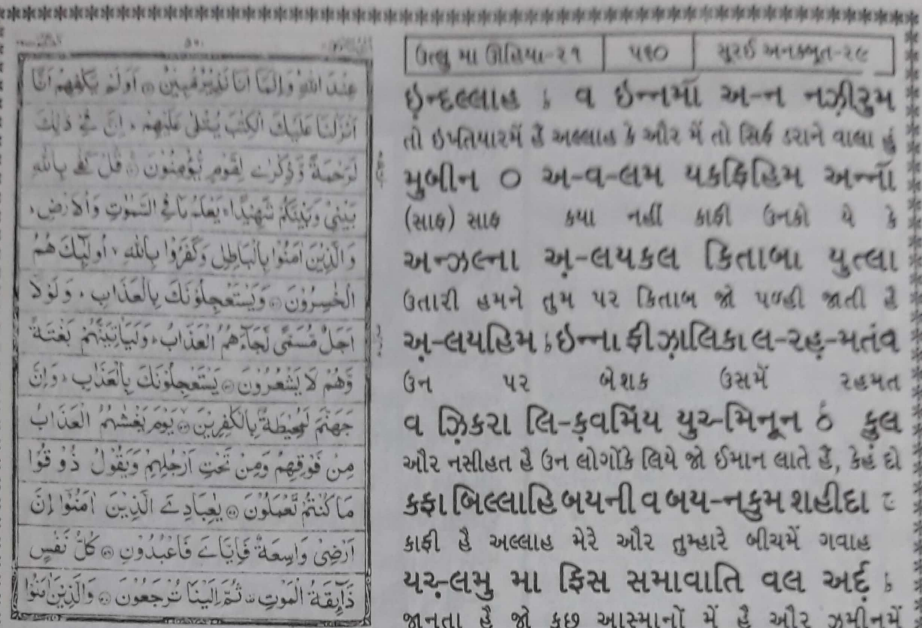 ઉત્લુ મા ઊહિયા-૨૧ | ૫૧૦ | સૂરઈ અનકબૂત-૨૯
عِنْدَ اللهِ وَاِنَّمَآ اَنَا نَذِيْرٌ مُّبِيْنٌ ۞ اَوَلَمْ يَكْفِهِمْ اَنَّآ
اَنْزَلْنَا عَلَيْكَ الْكِتٰبَ يُتْلٰى عَلَيْهِمْ ؕ اِنَّ فِيْ ذٰلِكَ
لَرَحْمَةً وَّذِكْرٰى لِقَوْمٍ يُّؤْمِنُوْنَ ۞ قُلْ كَفٰى بِاللهِ
بَيْنِيْ وَبَيْنَكُمْ شَهِيْدًا ۚ يَعْلَمُ مَا فِي السَّمٰوٰتِ وَالْاَرْضِ ؕ
وَالَّذِيْنَ اٰمَنُوْا بِالْبَاطِلِ وَكَفَرُوْا بِاللهِ ۙ اُولٰٓئِكَ هُمُ
الْخٰسِرُوْنَ ۞ وَيَسْتَعْجِلُوْنَكَ بِالْعَذَابِ ؕ وَلَوْلَآ
اَجَلٌ مُّسَمًّى لَّجَآءَهُمُ الْعَذَابُ ؕ وَلَيَاْتِيَنَّهُمْ بَغْتَةً
وَّهُمْ لَا يَشْعُرُوْنَ ۞ يَسْتَعْجِلُوْنَكَ بِالْعَذَابِ ؕ وَاِنَّ
جَهَنَّمَ لَمُحِيْطَةٌۢ بِالْكٰفِرِيْنَ ۞ يَوْمَ يَغْشٰىهُمُ الْعَذَابُ
مِنْ فَوْقِهِمْ وَمِنْ تَحْتِ اَرْجُلِهِمْ وَيَقُوْلُ ذُوْقُوْا
مَا كُنْتُمْ تَعْمَلُوْنَ ۞ يٰعِبَادِيَ الَّذِيْنَ اٰمَنُوْٓا اِنَّ
اَرْضِيْ وَاسِعَةٌ فَاِيَّايَ فَاعْبُدُوْنِ ۞ كُلُّ نَفْسٍ
ذَآئِقَةُ الْمَوْتِ ۟ ثُمَّ اِلَيْنَا تُرْجَعُوْنَ ۞ وَالَّذِيْنَ اٰمَنُوْا
ઇન્દલ્લાહ ; વ ઇન્નમૉ અ-ન નઝીરુમ
તો ઇખ્તિયારમેં હૈ અલ્લાહ કે ઔર મેં તો સિર્ફ ડરાને વાલા હું
મુબીન ૦ અ-વ-લમ યકફિહિમ અન્નૉ
(સાફ) સાફ કયા નહીં કાફી ઉનકો યે કે
અન્ઝલ્ના અ઼-લયકલ કિતાબા યુત્લા
ઉતારી હમને તુમ પર કિતાબ જો પળ્હી જાતી હૈ
અ઼-લયહિમ ; ઇન્ના ફી ઝાલિકા લ-રહ઼-મતંવ
ઉન પર બેશક ઉસમેં રહમત
વ ઝિકરા લિ-ક઼વમિંય યુઅ્-મિનૂન ૦ કુલ
ઔર નસીહત હૈ ઉન લોગોંકે લિયે જો ઈમાન લાતે હૈં, કેહ દો
કફા બિલ્લાહિ બયની વ બય-નકુમ શહીદા
કાફી હૈ અલ્લાહ મેરે ઔર તુમ્હારે બીચમેં ગવાહ
યઅ્-લમુ મા ફિસ સમાવાતિ વલ અર્દ઼ ;
જાનતા હૈ જો કુછ આસ્માનોં મેં હૈ ઔર ઝમીનમેં